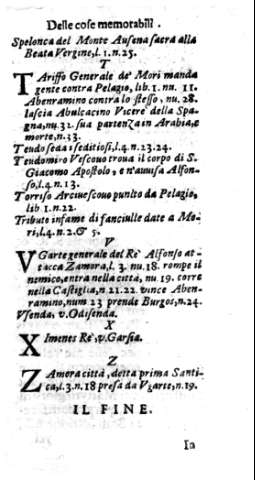 Delle cose memorabili.
Spelonca del Monte Ausena sacra alla
Beata Vergine, l. 1. n. 25.
T
TAriffo Generale de' Mori manda
gente contra Pelagio, lib. 1. nu. 11.
Abenramino contra lo stesso, nu. 28.
lascia Abulcacino Vicerè della Spa-
gna, nu. 31. sua partenza in Arabia, e
morte, n. 33.
Teudoseda i seditiosi, l. 4. n. 23. 24.
Teudomiro Vescouo troua il corpo di S.
Giacomo Apostolo, e n'auuisa Alfon-
so, l. 4. n. 13.
Torriso Arciuescouo punito da Pelagio,
lib 1. n. 22.
Tributo infame di fanciulle date a Mo-
ri, l. 4. n. 2. & 5.
V
VGarte generale del Rè Alfonso at-
tacca Zamora, l. 3. nu. 18. rompe il
nemico, entra nella città, nu. 19. corre
nella Castiglia, n 21. 22. vince Aben-
ramino, num 23 prende Burgos, n. 24.
Vsenda, v. Odisenda.
X
XImenes Rè, v. Garsia.
Z
ZAmera città, detta prima Santi-
ca, l. 3. n. 18 presa da Vgarte, n. 19.
IL FINE.
In